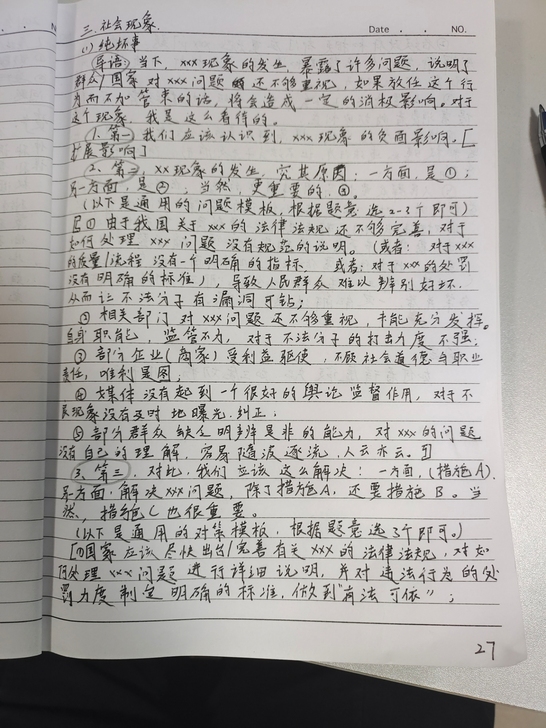 三. 社会现象.
Date . . NO.
(1) 纯坏事
(导语:) 当下, xxx现象的发生, 暴露了许多问题, 说明了
群众/国家 对xxx问题 还不够重视, 如果放任这个行
为而不加管束的话, 将会造成一定的消极影响。对于
这个现象, 我是这么看待的。
1. 第一 我们应该认识到, xxx现象的负面影响。[
扩展影响]
2. 第二 xx现象的发生, 究其原因: 一方面, 是①;
另一方面, 是②; 当然, 更重要的, ③。
(以下是通用的问题模板, 根据题意选2-3个即可)
[① 由于我国关于xxx的法律法规还不够完善, 对于
如何处理xxx问题没有规范的说明。(或者: 对于xxx
的质量/流程 没有一个明确的指标、 或者: 对于xxx的处罚
没有明确的标准), 导致人民群众难以辨别好坏.
从而让不法分子有漏洞可钻;
② 相关部门对xxx问题还不够重视, 未能充分发挥
自身职能, 监管不力, 对于不法分子的打击力度不强;
③ 部分企业(商家)受利益驱使, 不顾社会道德与职业
责任, 唯利是图;
④ 媒体没有起到一个很好的舆论监督作用, 对于不
良现象没有及时地曝光.纠正;
⑤ 部分群众缺乏明辨是非的能力, 对xxx的问题
没有自己的理解, 容易随波逐流, 人云亦云。]
3. 第三, 对此, 我们应该这么解决: 一方面, (措施A).
另一方面, 解决xxx问题, 除了措施A, 还要措施B。当
然, 措施C也很重要。
(以下是通用的对策模板, 根据题意选3个即可。)
[①国家应该尽快出台/完善有关xxx的法律法规, 对如
何处理xxx问题进行详细说明, 并对违法行为的处
罚力度制定明确的标准, 做到“有法可依”;
27